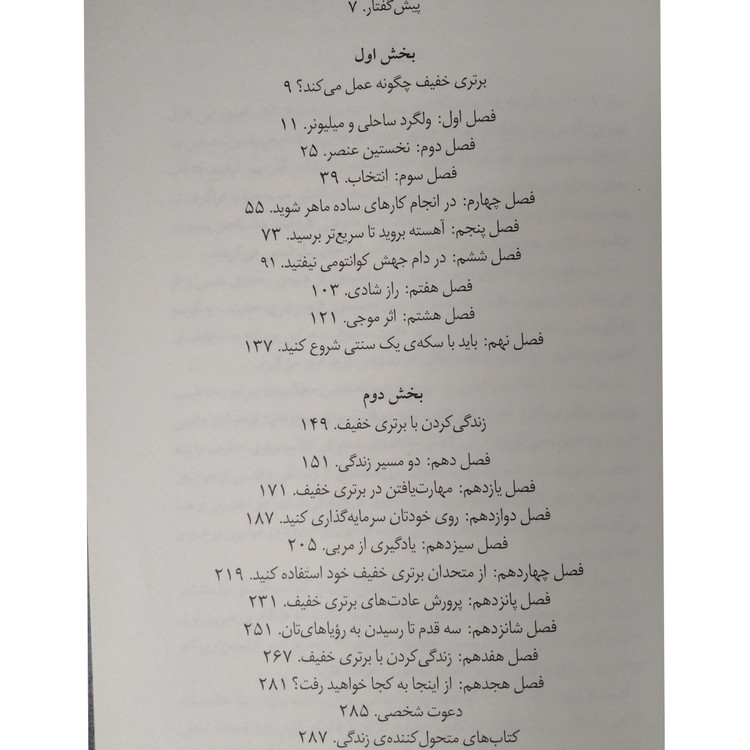 پیش‌گفتار. ۷
بخش اول
برتری خفیف چگونه عمل می‌کند؟ ۹
فصل اول: ولگرد ساحلی و میلیونر. ۱۱
فصل دوم: نخستین عنصر. ۲۵
فصل سوم: انتخاب. ۳۹
فصل چهارم: در انجام کارهای ساده ماهر شوید. ۵۵
فصل پنجم: آهسته بروید تا سریع‌تر برسید. ۷۳
فصل ششم: در دام جهش کوانتومی نیفتید. ۹۱
فصل هفتم: راز شادی. ۱۰۳
فصل هشتم: اثر موجی. ۱۲۱
فصل نهم: باید با سکه‌ی یک سنتی شروع کنید. ۱۳۷
بخش دوم
زندگی‌کردن با برتری خفیف. ۱۴۹
فصل دهم: دو مسیر زندگی. ۱۵۱
فصل یازدهم: مهارت‌یافتن در برتری خفیف. ۱۷۱
فصل دوازدهم: روی خودتان سرمایه‌گذاری کنید. ۱۸۷
فصل سیزدهم: یادگیری از مربی. ۲۰۵
فصل چهاردهم: از متحدان برتری خفیف خود استفاده کنید. ۲۱۹
فصل پانزدهم: پرورش عادت‌های برتری خفیف. ۲۳۱
فصل شانزدهم: سه قدم تا رسیدن به رؤیاهای‌تان. ۲۵۱
فصل هفدهم: زندگی‌کردن با برتری خفیف. ۲۶۷
فصل هجدهم: از اینجا به کجا خواهید رفت؟ ۲۸۱
دعوت شخصی. ۲۸۵
کتاب‌های متحول‌کننده‌ی زندگی. ۲۸۷